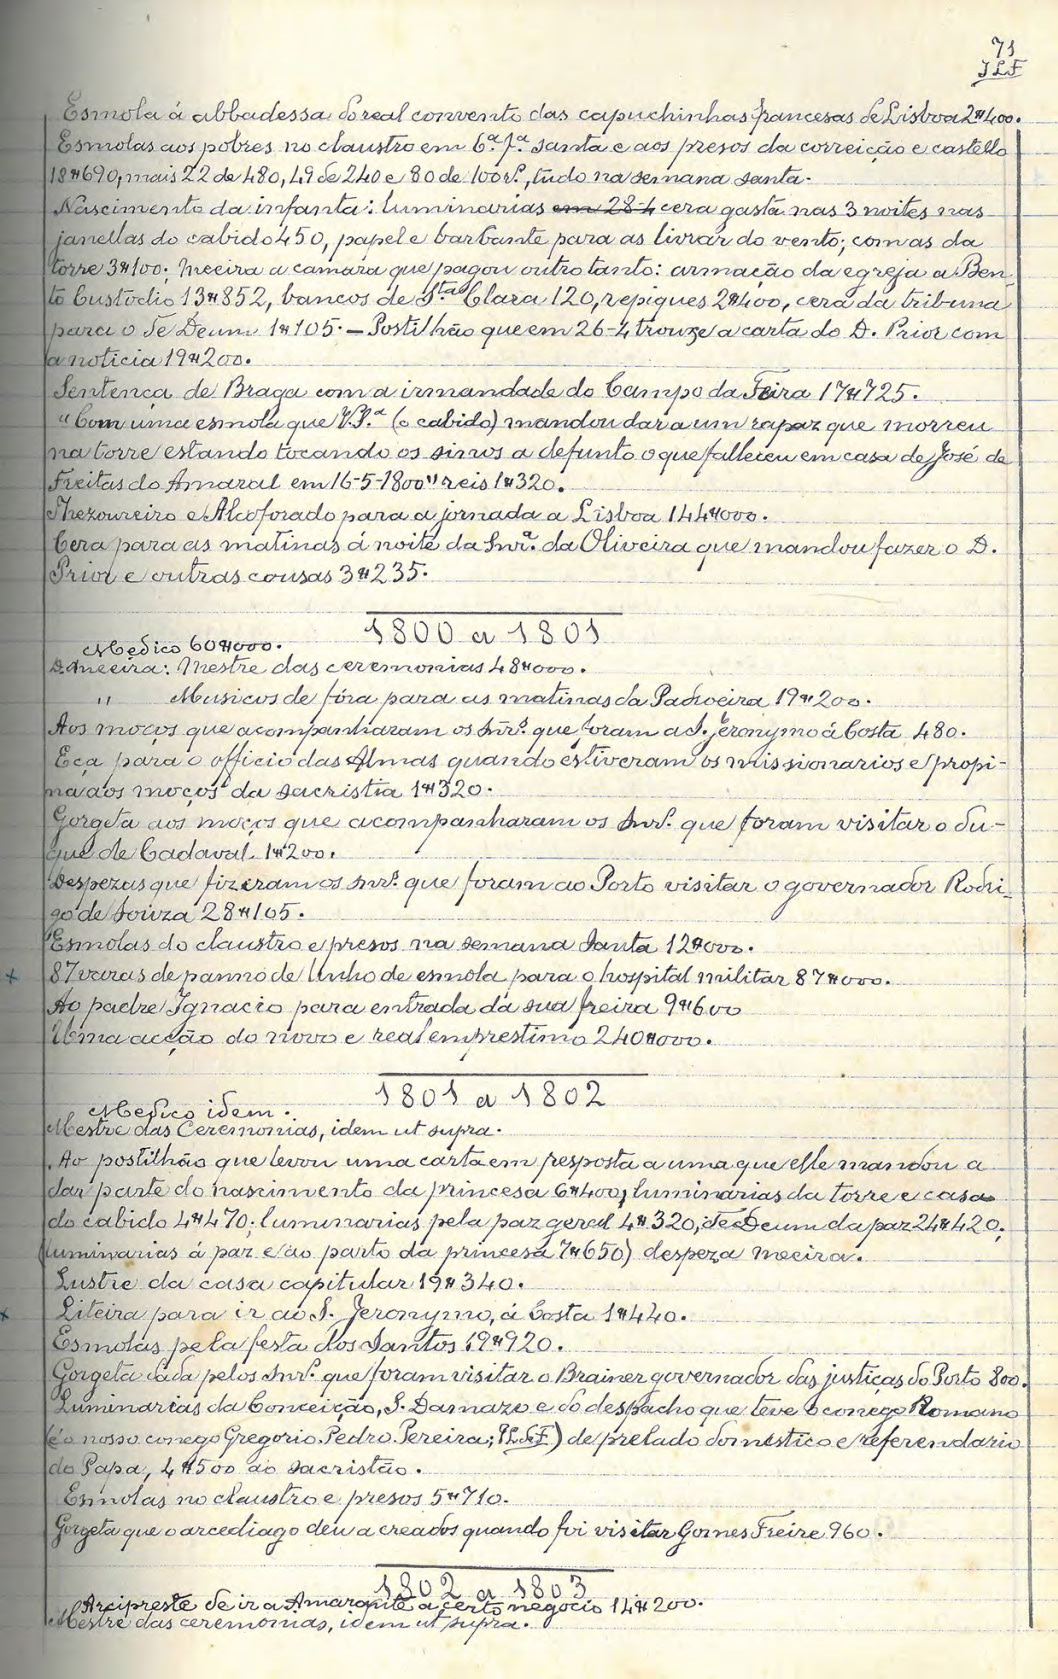 71
J L F
Esmola á abbadessa do real convento das capuchinhas francesas de Lisboa 2#400.
Esmolas aos pobres no claustro em 6ª fª santa e aos presos da correição e castello
18#690, mais 22 de 480, 49 de 240 e 80 de 100 rs., tudo na semana santa.
Nascimento da infanta: luminarias em 28-4 cera gasta nas 3 noites nas
janellas do cabido 450, papel e barbante para as livrar do vento; com as da
torre 3#100; meeira a camara que pagou outro tanto: armação da egreja a Ben-
to Custodio 13#852, bancos de Stª Clara 120, repiques 2#400, cera da tribuna
para o Te Deum 1#105. — Postilhão que em 26-4 trouxe a carta do D. Prior com
a noticia 19#200.
Sentença de Braga com a irmandade do Campo da Feira 17#725.
"Com uma esmola que V.S.ª (o cabido) mandou dar a um rapaz que morreu
na torre estando tocando os sinos a defunto o que falleceu em casa de José de
Freitas do Amaral em 16-5-1800" reis 1#320.
Thezoureiro e Alcoforado para a jornada a Lisboa 144#000.
Cera para as matinas á noite da Snrª. da Oliveira que mandou fazer o D.
Prior e outras cousas 3#235.
1800 a 1801
Medico 60#000.
D. meeira: Mestre das ceremonias 48#000.
" Musicos de fóra para as matinas da Padroeira 19#200.
Aos moços que acompanharam os Snrs. que foram a S. Jeronymo á Costa 480.
Eça para o officio das Almas quando estiveram os missionarios e propi-
na aos moços da sacristia 1#320.
Gorgeta aos moços que acompanharam os Snrs. que foram visitar o du-
que de Cadaval 1#200.
Despezas que fizeram os snrs. que foram ao Porto visitar o governador Rodri-
go de Souza 28#105.
Esmolas do claustro e presos na semana santa 12#000.
x 87 varas de panno de linho de esmola para o hospital militar 87#000.
Ao padre Ignacio para entrada da sua freira 9#600
Uma acção do novo e real emprestimo 240#000.
1801 a 1802
Medico idem.
Mestre das Ceremonias, idem ut supra.
Ao postilhão que levou uma carta em resposta a uma que elle mandou a
dar parte do nascimento da princesa 6#400, luminarias da torre e casa
do cabido 4#470; luminarias pela paz geral 4#320; Te Deum da paz 24#420;
luminarias á paz e ao parto da princesa 7#650) despeza meeira.
Lustre da casa capitular 19#340.
x Liteira para ir ao S. Jeronymo, á Costa 1#440.
Esmolas pela festa dos Santos 19#920.
Gorgeta dada pelos Snrs. que foram visitar o Brainer governador das justiças do Porto 800.
Luminarias da Conceição, S. Damazo e do despacho que teve o conego Romano
(é o nosso conego Gregorio Pedro Pereira; J.L.F) de prelado domestico e referendario
do Papa, 4#500 ao sacristão.
Esmolas no claustro e presos 5#710.
Gorgeta que o arcediago deu a creados quando foi visitar Gomes Freire 960.
1802 a 1803
Arcipreste de ir a Amarante a certo negocio 14#200.
Mestre das ceremonias, idem ut supra.